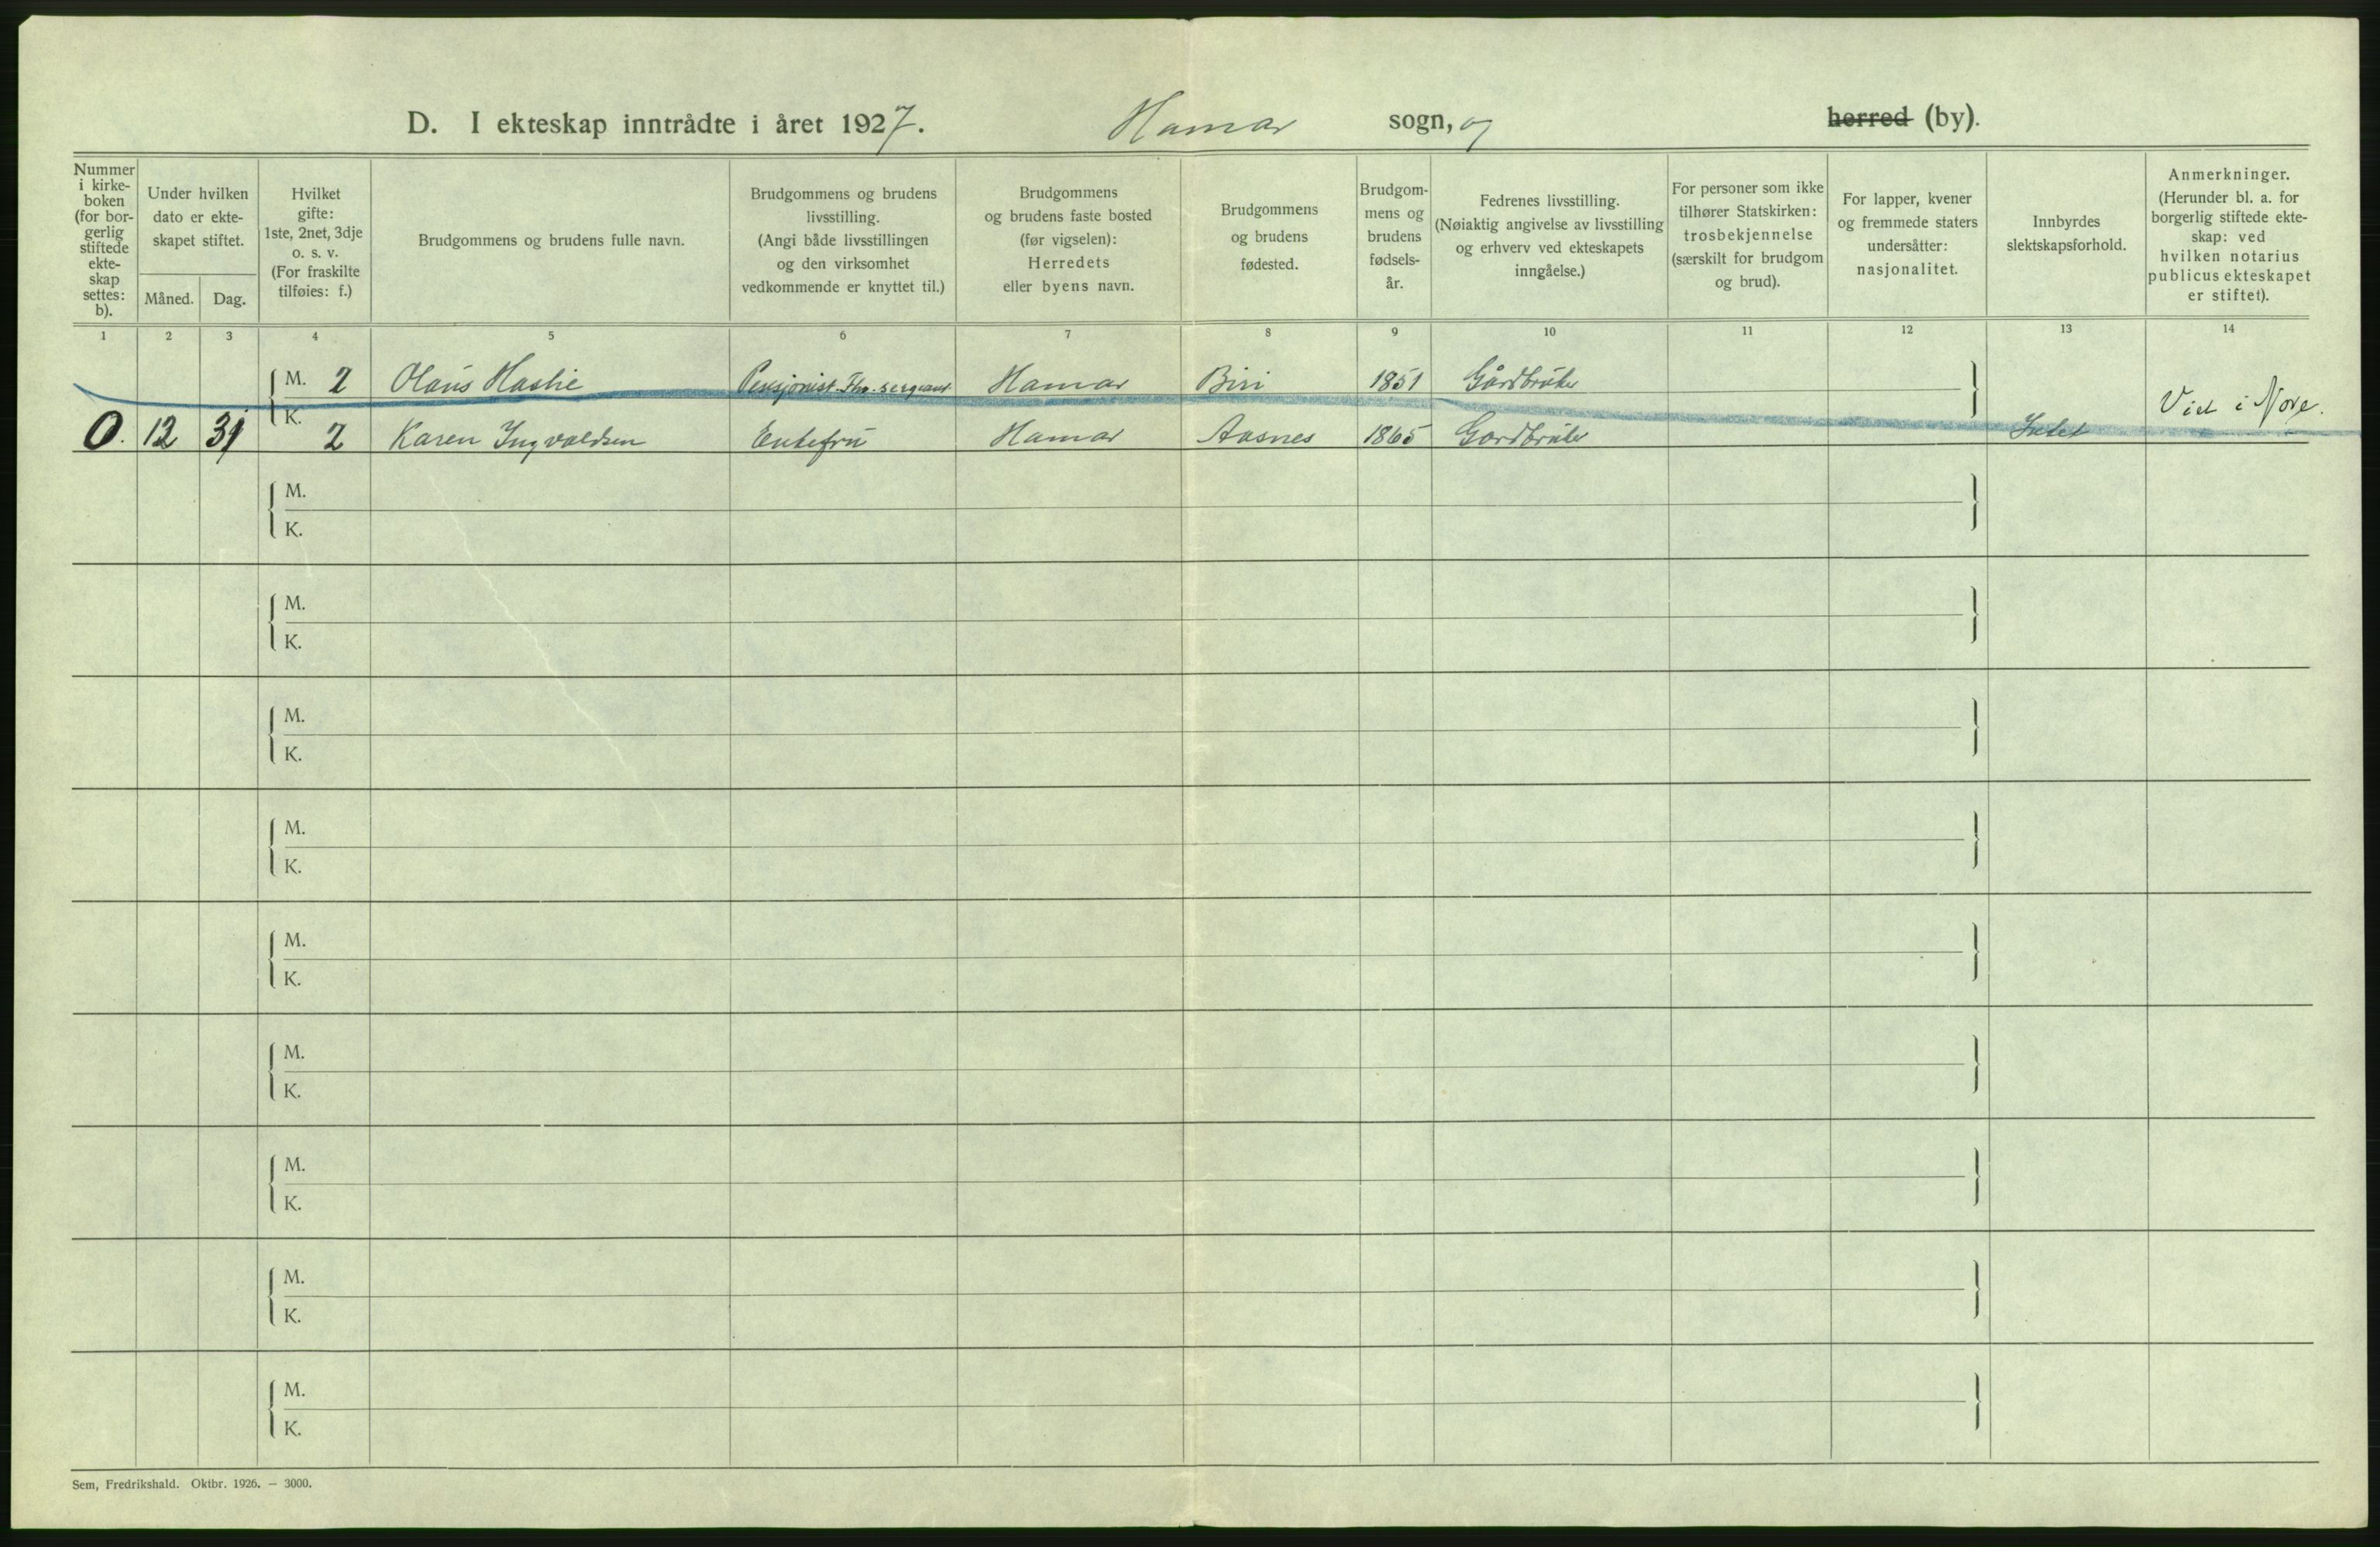 D. I ekteskap inntrådte i året 1927. Hamar sogn, og herred (by).
Nummer i kirke-boken (for bor-gerlig stiftede ekte-skap settes: b).
Under hvilken dato er ekte-skapet stiftet.
Måned. Dag.
Hvilket gifte: 1ste, 2net, 3dje o. s. v. (For fraskilte tilføies: f.)
Brudgommens og brudens fulle navn.
Brudgommens og brudens livsstilling. (Angi både livsstillingen og den virksomhet vedkommende er knyttet til.)
Brudgommens og brudens faste bosted (før vigselen): Herredets eller byens navn.
Brudgommens og brudens fødested.
Brudgom-mens og brudens fødsels-år.
Fedrenes livsstilling. (Nøiaktig angivelse av livsstilling og erhverv ved ekteskapets inngåelse.)
For personer som ikke tilhører Statskirken: trosbekjennelse (særskilt for brudgom og brud).
For lapper, kvener og fremmede staters undersåtter: nasjonalitet.
Innbyrdes slektskapsforhold.
Anmerkninger. (Herunder bl. a. for borgerlig stiftede ekte-skap: ved hvilken notarius publicus ekteskapet er stiftet).
1 2 3 4 5 6 7 8 9 10 11 12 13 14
M. 2 Olaus Haslie Pensjonist. Fhv. sergeant Hamar Biri 1851 Gårdbruker
Viet i Nore.
0. 12 31 K. 2 Karen Ingvaldsen Enkefru Hamar Aasnes 1865 Gardbruker Intet
M.
K.
M.
K.
M.
K.
M.
K.
M.
K.
M.
K.
M.
K.
M.
K.
M.
K.
Sem, Fredrikshald. Oktbr. 1926. — 3000.